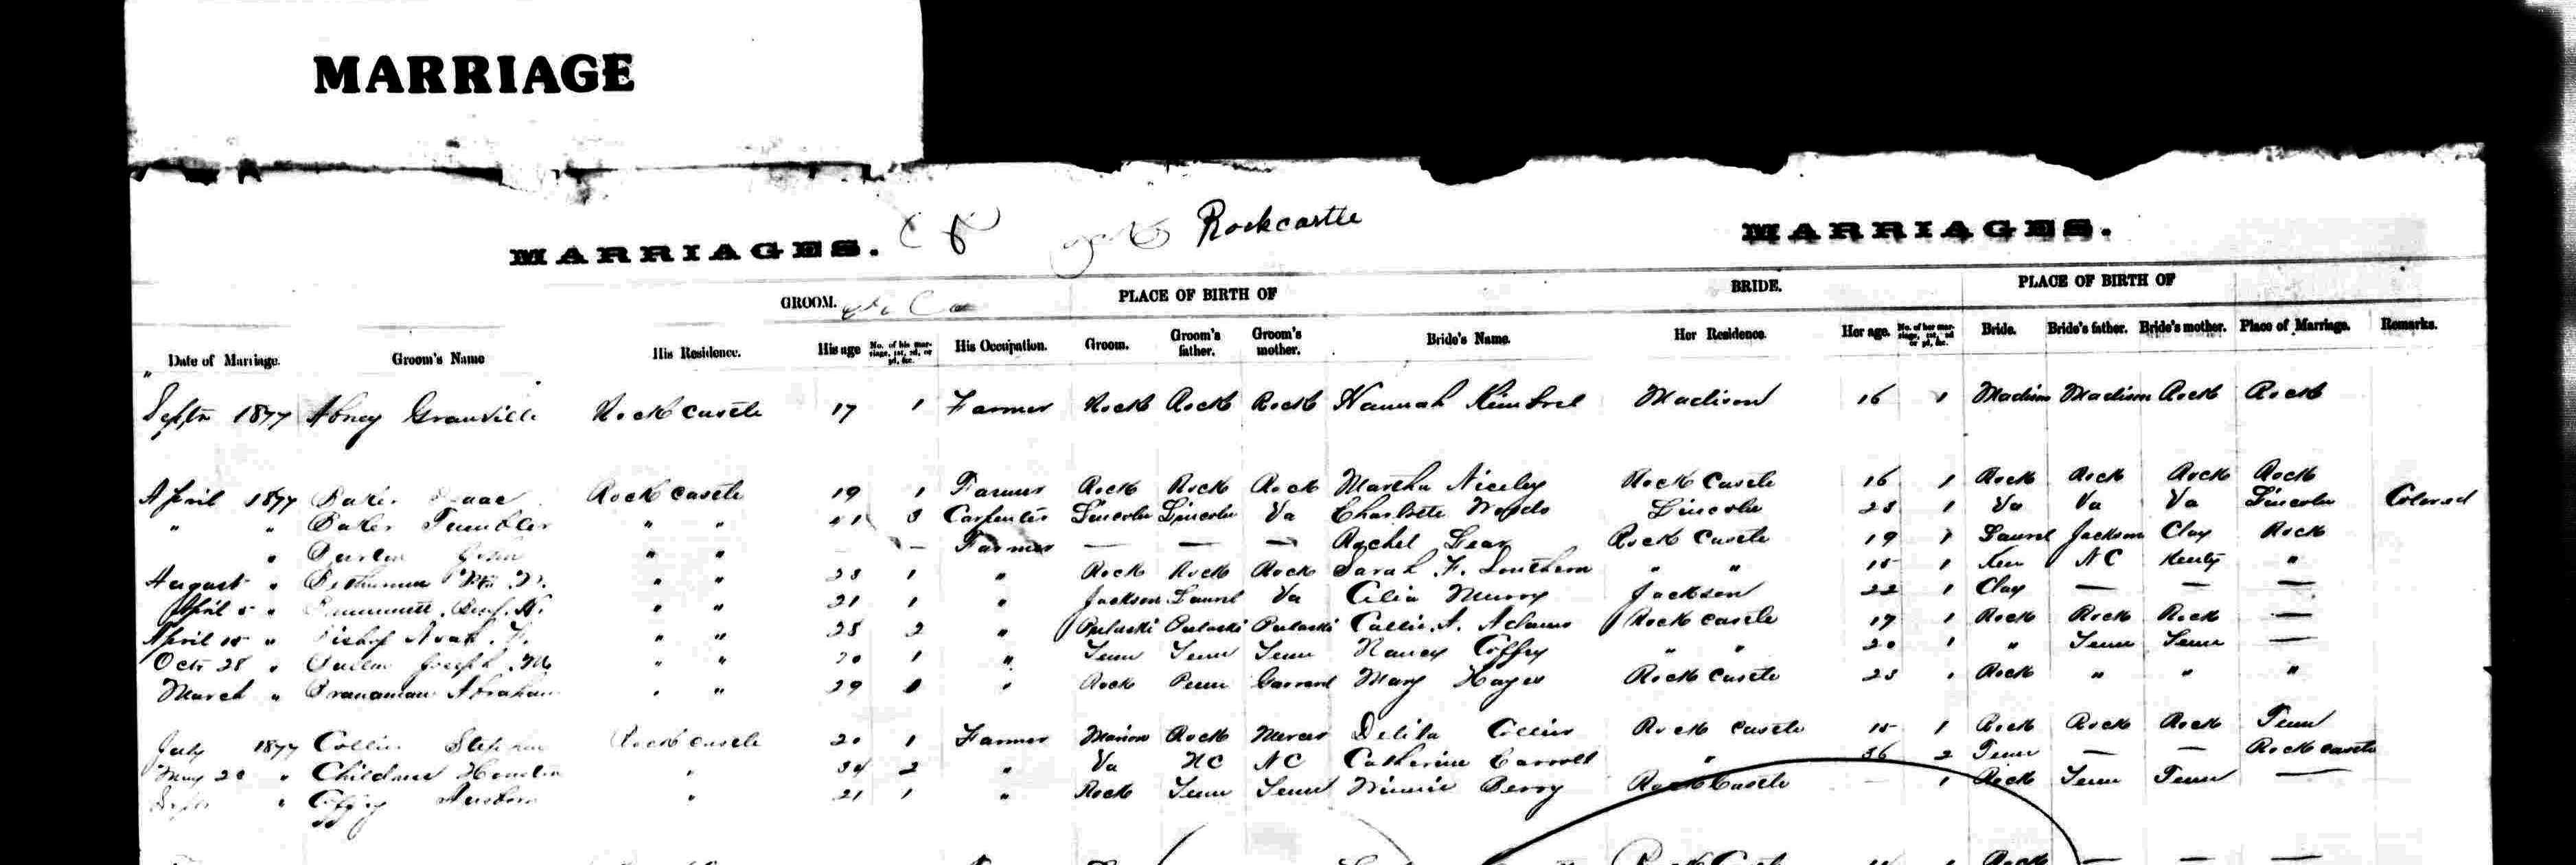 MARRIAGE
Rockcastle
MARRIAGES. MARRIAGES.
GROOM. PLACE OF BIRTH OF BRIDE. PLACE OF BIRTH OF
Date of Marriage. Groom's Name His Residence. His age No. of his marriage, 1st, 2d, or 3d, &c. His Occupation. Groom. Groom's father. Groom's mother. Bride's Name. Her Residence. Her age. No. of her marriage, 1st, 2d or 3d, &c. Bride. Bride's father. Bride's mother. Place of Marriage. Remarks.
Septr 1877 Abney Granville Rock castle 17 1 Farmer Rock Rock Rock Hannah Kimbrel Madison 16 1 Madison Madison Rock Rock
April 1877 Baker Isaac Rock castle 19 1 Farmer Rock Rock Rock Martha Niceley Rock Castle 16 1 Rock Rock Rock Rock
" " Baker Tumbler " " 41 3 Carpenter Lincoln Lincoln Va Charlotte Woods Lincoln 28 1 Va Va Va Lincoln Colored
" John " " — — Farmer — — — Rachel Lear Rock Castle 19 1 Laurel Jackson Clay Rock
August " " " 23 1 " Rock Rock Rock Sarah F. Southern " " 15 1 Ken NC Kenty "
April 5 " " " 21 1 " Jackson Laurel Va Murry Jackson 22 1 Clay — — —
April 15 " Bishop " " 25 2 " Pulaski Pulaski Pulaski Callie A. Adams Rock castle 17 1 Rock Rock Rock —
Octr 28 " Joseph M " " 20 1 " Tenn Tenn Tenn Nancy Coffey " " 20 1 " Tenn Tenn —
March " Brananaman Abraham " " 29 " Rock Penn Garrard Mary Hayes Rock Castle 23 1 Rock " " "
July 1877 Collins Stephen Rock castle 20 1 Farmer Marion Rock Mercer Delila Collins Rock castle 15 1 Rock Rock Rock Tenn
May 20 " Houston " 34 2 " Va NC NC Catherine Carroll " 36 2 Tenn — — Rock castle
" Coffey " 21 1 " Rock Tenn Tenn Minnie Berry Rock Castle — 1 Rock Tenn Tenn —
Rock Castle Rock — — —